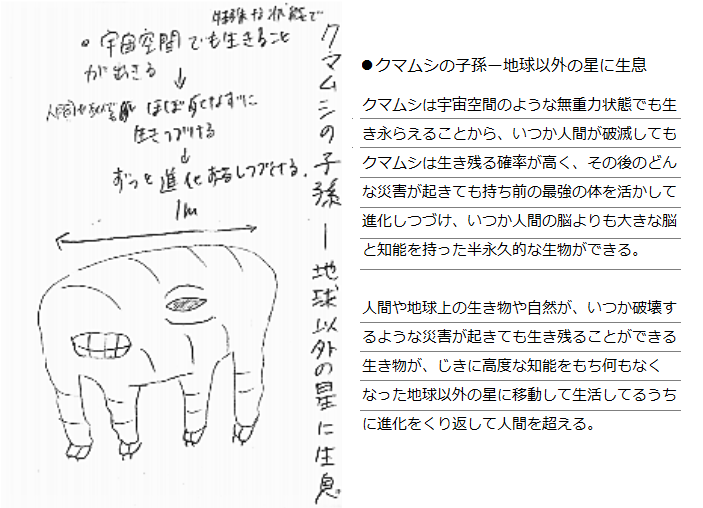 特殊な状態で
・宇宙空間でも生きること
ができる
↓
ほぼ死なずに
生きつづける
↓
ずっと進化おをしつづける.
1m
クマムシの子孫ー地球以外の星に生息
●クマムシの子孫ー地球以外の星に生息
クマムシは宇宙空間のような無重力状態でも生
き永らえることから、いつか人間が破滅しても
クマムシは生き残る確率が高く、その後のどん
な災害が起きても持ち前の最強の体を活かして
進化しつづけ、いつか人間の脳よりも大きな脳
と知能を持った半永久的な生物ができる。
人間や地球上の生き物や自然が、いつか破壊す
るような災害が起きても生き残ることができる
生き物が、じきに高度な知能をもち何もなく
なった地球以外の星に移動して生活してるうち
に進化をくり返して人間を超える。